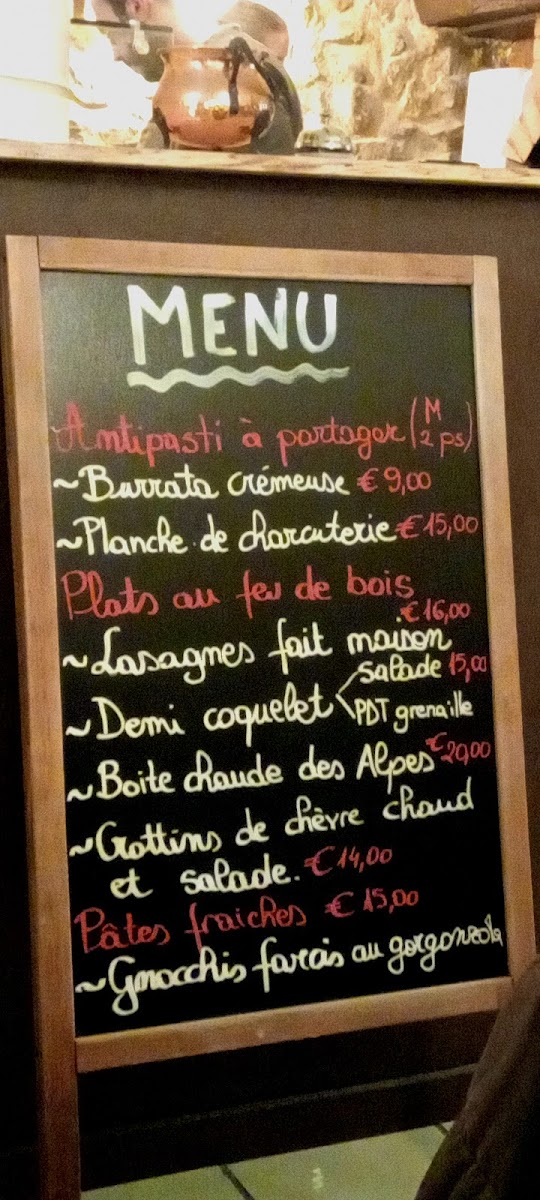 MENU
Antipasti à partager (M 2 ps)
~Burrata crémeuse € 9,00
~Planche de charcuterie € 15,00
Plats au feu de bois
€ 16,00
~Lasagnes fait maison
~Demi coquelet salade 15,00
PDT grenaille
~Boite chaude des Alpes € 20,00
~Crottins de chèvre chaud
et salade. € 14,00
Pâtes fraiches € 15,00
~Gnocchis farcis au gorgonzola